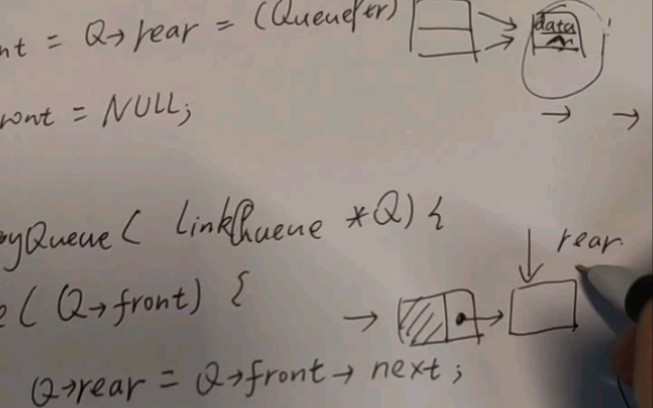 nt = Q→rear = (Queueptr)
data
ront = NULL;
oyQueue( LinkQueue *Q) {
rear.
e( Q→front) {
Q→rear = Q→front→next;